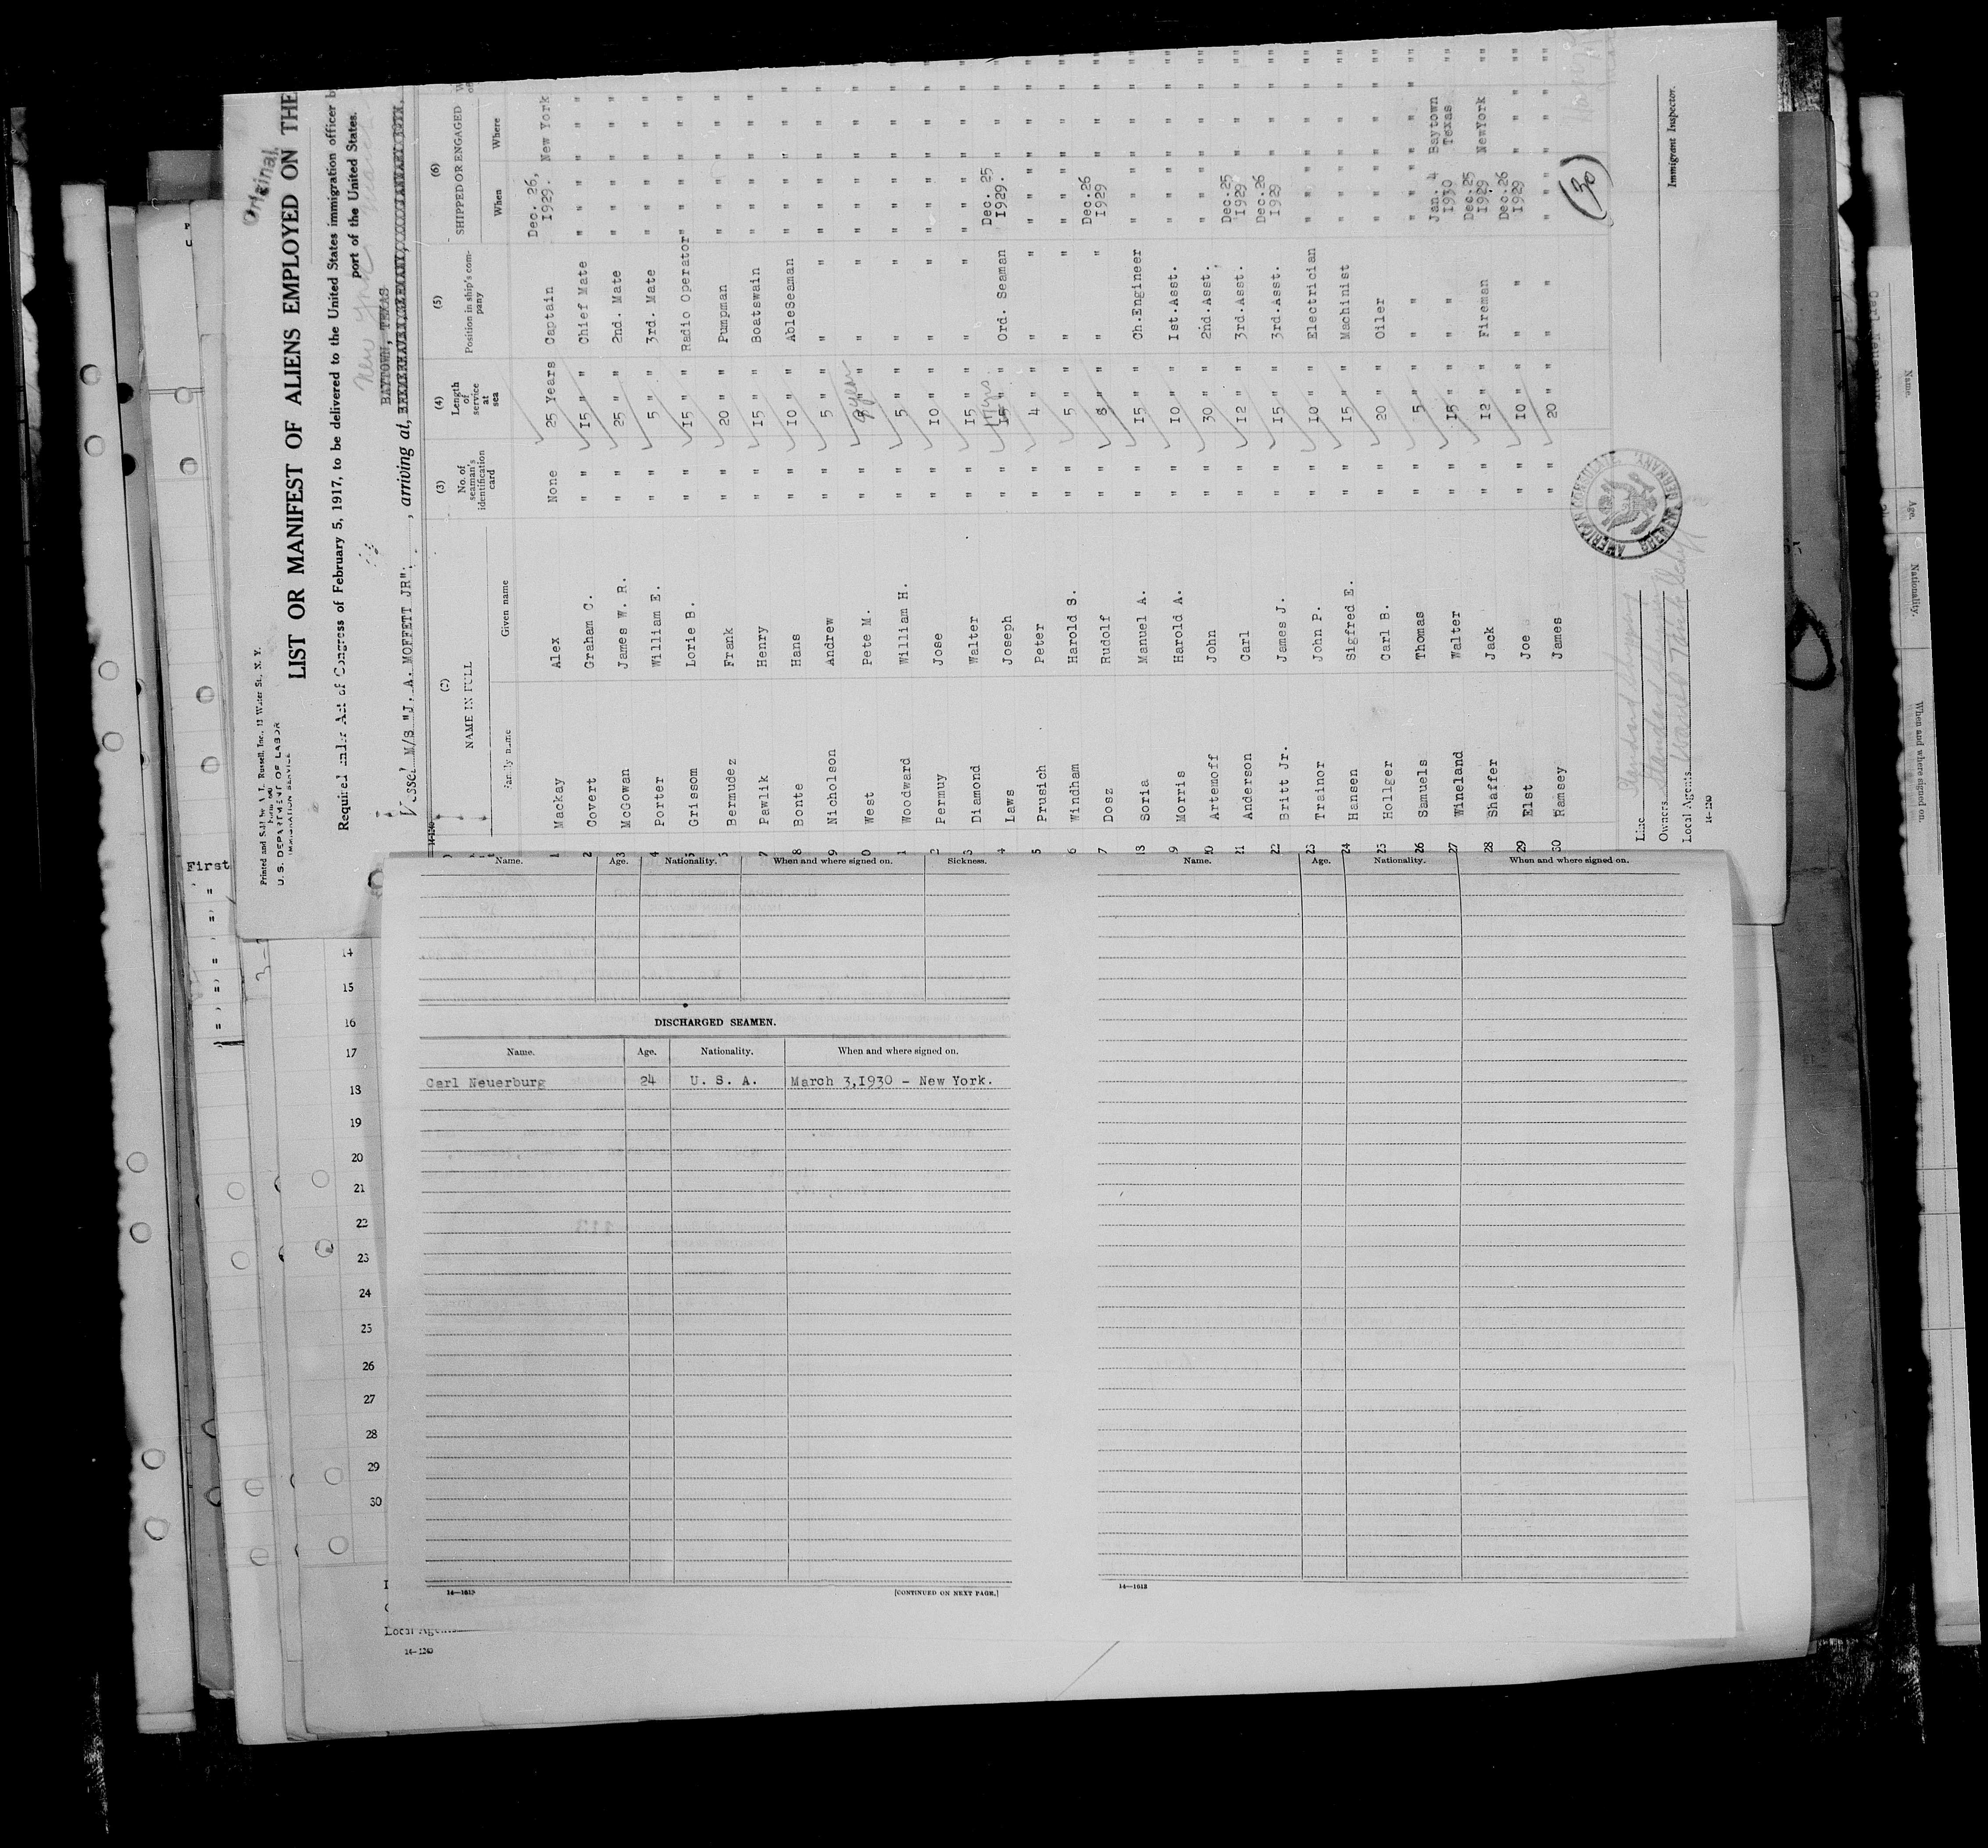 Original
Printed and Sold by A. L. Russell, Inc., 12 Water St., N. Y.
U. S. DEPARTMENT OF LABOR
IMMIGRATION SERVICE
LIST OR MANIFEST OF ALIENS EMPLOYED ON THE
Required under Act of Congress of February 5, 1917, to be delivered to the United States immigration officer b
port of the United States.
New York
BAYTOWN, TEXAS
Vessel M/S "J. A. MOFFETT JR", arriving at,
(2) (3) (4) (5) (6)
NAME IN FULL No. of seaman's identification card Length of service at sea Position in ship's company SHIPPED OR ENGAGED
Family name Given name When Where
1 Mackay Alex None 25 Years Captain Dec. 26, 1929. New York
2 Covert Graham C. " " 15 " " Chief Mate " " " " "
3 McGowan James W. R. " " 25 " " 2nd. Mate " " " " "
4 Porter William E. " " 5 " " 3rd. Mate " " " " "
5 Grissom Lorie B. " " 15 " " Radio Operator " " " " "
Bermudez Frank " " 20 " " Pumpman " " " " "
7 Pawlik Henry " " 15 " " Boatswain " " " " "
8 Bonte Hans " " 10 " " AbleSeaman " " " " "
9 Nicholson Andrew " " 5 " " " " " " " "
0 West Pete M. " " 9 year " " " " " " "
1 Woodward William H. " " 5 " " " " " " " "
2 Permuy Jose " " 10 " " " " " " " "
3 Diamond Walter " " 15 " " " " " " " "
4 Laws Joseph " " 17 yrs. " Ord. Seaman Dec. 25 1929. " "
5 Prusich Peter " " 4 " " " " " " " "
6 Windham Harold S. " " 5 " " " " " " " "
7 Dosz Rudolf " " 8 " " " Dec.26 1929 " "
18 Soria Manuel A. " " 15 " " Ch.Engineer " " " " "
9 Morris Harold A. " " 10 " " 1st.Asst. " " " " "
20 Artemoff John " " 30 " " 2nd.Asst. " " " " "
21 Anderson Carl " " 12 " " 3rd.Asst. Dec.25 1929 " "
22 Britt Jr. James J. " " 15 " " 3rd.Asst. Dec.26 1929 " "
23 Trainor John P. " " 10 " " Electrician " " " " "
24 Hansen Sigfred E. " " 15 " " Machinist " " " " "
25 Hollger Carl B. " " 20 " " Oiler " " " " "
26 Samuels Thomas " " 5 " " " " " " " " "
27 Wineland Walter " " 15 " " " " Jan. 4 1930 Baytown Texas
28 Shaffer Jack " " 12 " " Fireman Dec.25 1929 NewYork
29 Elst Joe " " 10 " " " " Dec.26 1929 " "
30 Ramsey James " " 20 " " " " " " " " "
(30)
AMERICAN CONSULATE, BREMEN, GERMANY.
Line Standard Shipping
Owners
Local Agents
14-1240
Immigrant Inspector.
First
14
15
16
17
18
19
20
21
22
23
24
25
26
27
28
29
30
Name. Age. Nationality. When and where signed on. Sickness.
DISCHARGED SEAMEN.
Name. Age. Nationality. When and where signed on.
Carl Neuerburg 24 U. S. A. March 3,1930 - New York.
14—1613 [CONTINUED ON NEXT PAGE.]
Name. Age. Nationality. When and where signed on.
14—1613
Local Agents
14-1240
Name. Age. Nationality. When and where signed on.